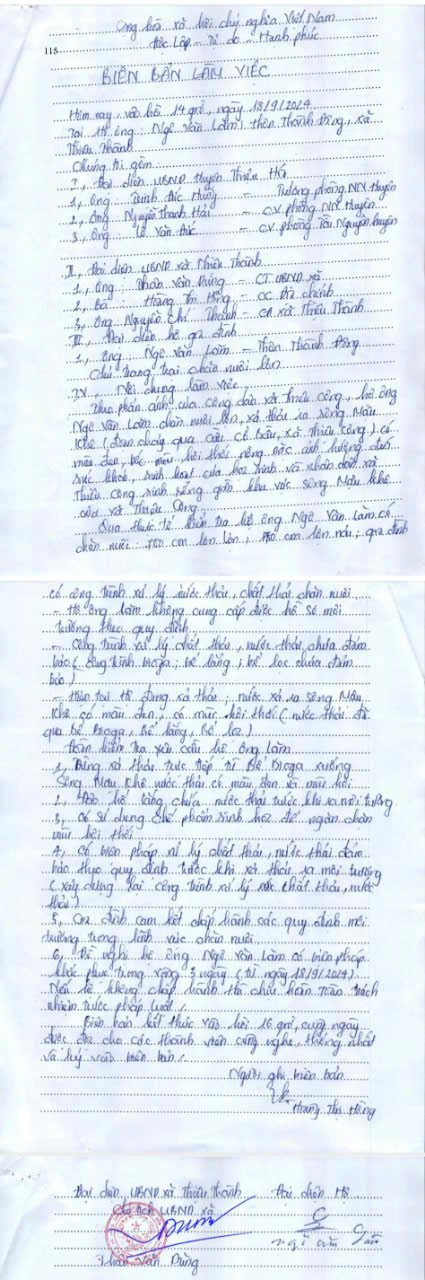 Cộng hòa xã hội chủ nghĩa Việt Nam
Độc lập - Tự do - Hạnh phúc
118
BIÊN BẢN LÀM VIỆC
Hôm nay, vào hồi 14 giờ, ngày 18/9/2024
Tại hộ ông: Ngô Văn Lâm; thôn Thành Đông, xã
Thiệu Thành
Chúng tôi gồm
I, Đại diện UBND huyện Thiệu Hóa
1, Ông Trịnh Đức Hùng - Trưởng phòng NN huyện
2, Ông Nguyễn Thanh Hải - CV. phòng NN huyện
3, Ông Lê Văn Đức - CV. phòng Tài Nguyên huyện
II, Đại diện UBND xã Thiệu Thành
1, Ông: Văn Dũng - CT UBND xã
2, Bà: Hoàng Thị Hồng - CC Địa chính
3, Ông Nguyễn Chí Thanh - CA xã Thiệu Thành
III, Đại diện hộ gia đình
1, Ông: Ngô Văn Lâm - Thôn Thành Đông
Chủ trang trại chăn nuôi lợn
IV, Nội dung làm việc
Theo phản ánh của công dân xã Thiệu Công, hộ ông
Ngô Văn Lâm chăn nuôi lợn, xả thải ra sông Mậu
Khê (đoạn chảy qua cầu xã Thiệu Công) có
màu đen, bốc mùi hôi thối nồng nặc ảnh hưởng đến
sức khỏe, sinh hoạt của học sinh và nhân dân xã
Thiệu Công sinh sống gần khu vực sông Mậu Khê
của xã Thiệu Công
Qua thực tế kiểm tra hộ ông Ngô Văn Lâm có
chăn nuôi: con lợn lớn, con lợn nái; gia đình
có công trình xử lý nước thải, chất thải chăn nuôi
- Hộ ông Lâm không cung cấp được hồ sơ môi
trường theo quy định
- Công trình xử lý chất thải, nước thải chưa đảm
bảo (công trình Bioga; bể lắng; bể lọc chưa đảm
bảo)
- Hiện tại hộ đang xả thải; nước xả ra sông Mậu
Khê có màu đen, có mùi hôi thối (nước thải đã
qua bể Bioga, bể lắng, bể lọc)
Đoàn kiểm tra yêu cầu hộ ông Lâm
1, Dừng xả thải trực tiếp từ bể Bioga xuống
sông Mậu Khê nước thải có màu đen và mùi hôi
2, Đào hồ lắng chứa nước thải trước khi ra môi trường
3, Có sử dụng chế phẩm sinh học để ngăn chặn
mùi hôi thối
4, Có biện pháp xử lý chất thải, nước thải đảm
bảo theo quy định trước khi xả thải ra môi trường
(xây dựng lại công trình xử lý chất thải, nước
thải)
5, Gia đình cam kết chấp hành các quy định môi
trường trong lĩnh vực chăn nuôi
6, Đề nghị hộ ông Ngô Văn Lâm có biện pháp
khắc phục trong vòng 3 ngày (từ ngày 18/9/2024)
Nếu hộ không chấp hành thì chịu hoàn toàn trách
nhiệm trước pháp luật./.
Biên bản kết thúc vào hồi 16 giờ, cùng ngày
được đọc cho các thành viên cùng nghe, thống nhất
và ký vào biên bản./.
Người ghi biên bản
Hoàng Thị Hồng
Đại diện UBND xã Thiệu Thành Đại diện hộ
Chủ tịch UBND xã
Văn Dũng
ngô văn Lâm